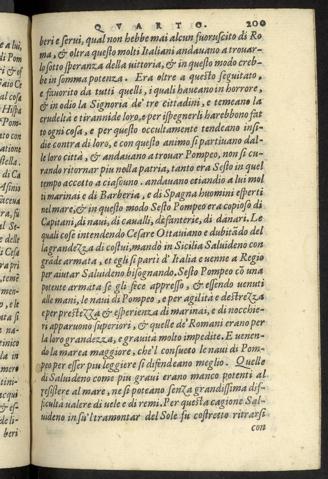 QVARTO. 200
beri e serui, qual non hebbe mai alcun fuoruscito di Ro
ma, & oltra questo molti Italiani andauano a trouar-
lo sotto speranza della vittoria, & in questo modo creb-
be in somma potenza. Era oltre a questo seguitato,
e fauorito da tutti quelli, i quali haueano in horrore,
& in odio la Signoria de' tre cittadini, e temeano la
crudeltà e tirannide loro, e per ispegnerli harebbono fat
to ogni cosa, e per questo occultamente tendeano insi-
die contra di loro, e con questo animo si partiuano dal-
le loro città, & andauano a trouar Pompeo, non si cu-
rando ritornar piu nella patria, tanto era Sesto in quel
tempo accetto a ciascuno. andauano etiandio a lui mol
ti marinai e di Barberia, e di Spagna huomini esperti
nel mare, & in questo modo Sesto Pompeo era copioso di
Capitani, di naui, di caualli, di fanterie, di danari. Le
quali cose intendendo Cesare Ottauiano e dubitādo del
la grandezza di costui, mandò in Sicilia Saluideno con
grāde armata, et egli si partì d'Italia e uenne a Regio
per aiutar Saluideno bisognando, Sesto Pompeo cō una
potente armata se gli fece appresso, & essendo uenuti
alle mani, le naui di Pompeo, e per agilità e destrezza
e per prestezza & esperienza di marinai, e di nocchie-
ri apparuono superiori, & quelle de' Romani erano per
la loro grandezza, e grauità molto impedite. E uenen-
do la marea maggiore, che'l consueto le naui di Pom-
peo per esser piu leggiere si difendeano meglio. Quelle
di Saluideno come piu graui erano manco potenti al
resistere al mare, ne si poteano senza grandissima dif-
ficultà valere di uele e di remi. Per questa cagione Sal-
uideno in su'l tramontar del Sole fu costretto ritrarsi
con